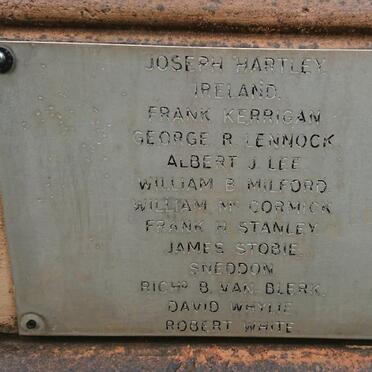 JOSEPH HARTLEY
IRELAND.
FRANK KERRIGAN
GEORGE R LENNOCK
ALBERT J LEE
WILLIAM B MILFORD
WILLIAM Mc CORMICK
FRANK H STANLEY
JAMES STOBIE
SNEDDON
RICHD B. VAN BLERK.
DAVID WHYLIE
ROBERT WHITE